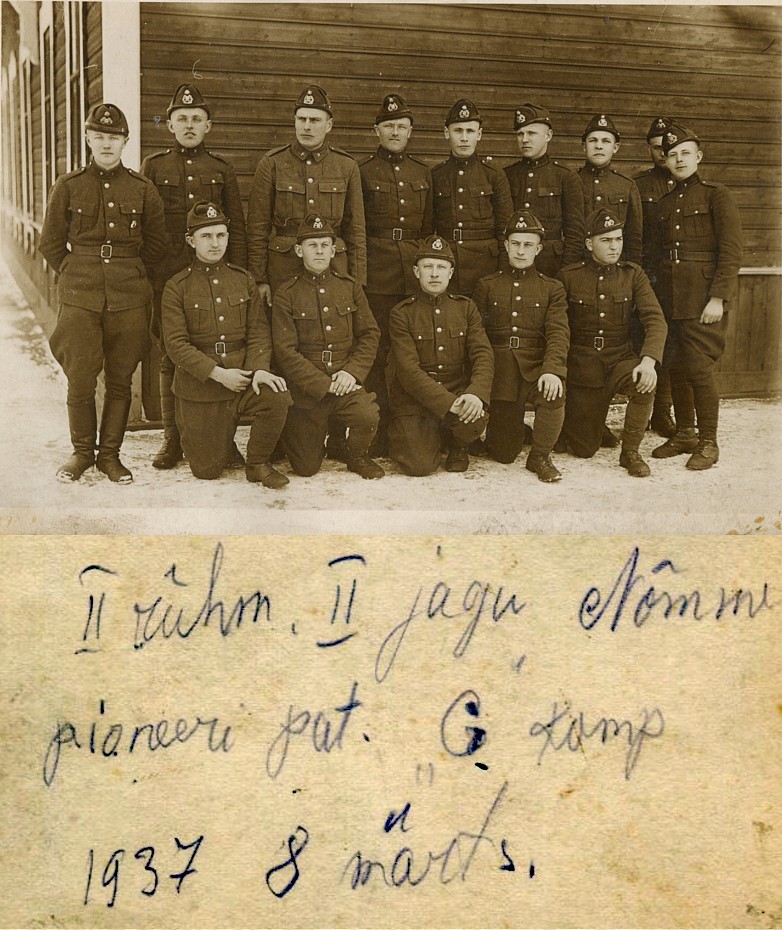 II rühm. II jagu Nõmme
pioneeri pat. "G" komp
1937 8 märts.